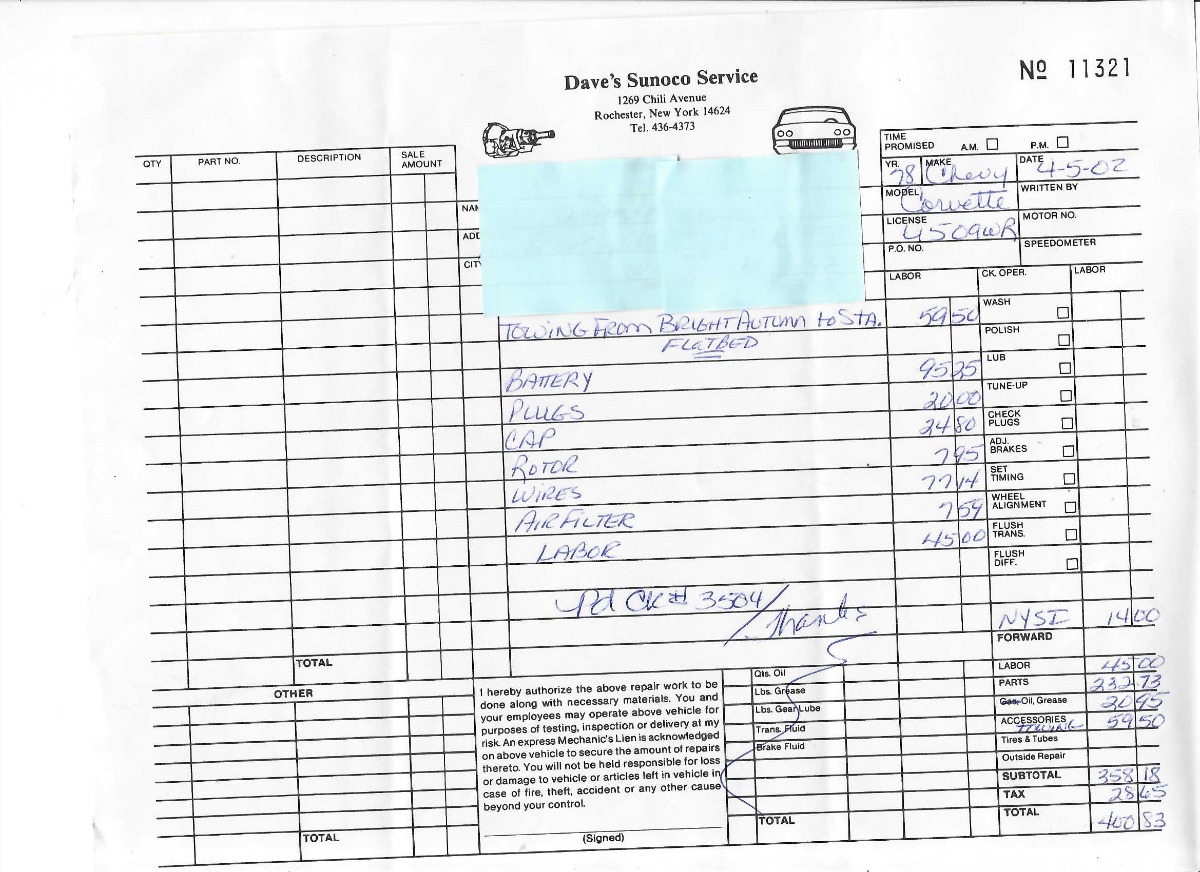 Nº 11321
Dave's Sunoco Service
1269 Chili Avenue
Rochester, New York 14624
Tel. 436-4373
TIME PROMISED A.M. P.M.
YR. 78 MAKE Chevy DATE 4-5-02
MODEL Corvette WRITTEN BY
LICENSE 4509WR MOTOR NO.
P.O. NO. SPEEDOMETER
QTY PART NO. DESCRIPTION SALE AMOUNT
NAM
ADD
CITY
LABOR CK. OPER. LABOR
TOWING FROM BRIGHT AUTUMN to STA. 59 50 WASH
FLATBED POLISH
BATTERY 95 25 LUB
PLUGS 20 00 TUNE-UP
CAP 24 80 CHECK PLUGS
ROTOR 7 95 ADJ. BRAKES
WIRES 77 14 SET TIMING
AIR FILTER 7 59 WHEEL ALIGNMENT
LABOR 45 00 FLUSH TRANS.
FLUSH DIFF.
Pd CK# 3504/Thanks
NYSI 14 00
FORWARD
TOTAL
OTHER
TOTAL
I hereby authorize the above repair work to be
done along with necessary materials. You and
your employees may operate above vehicle for
purposes of testing, inspection or delivery at my
risk. An express Mechanic's Lien is acknowledged
on above vehicle to secure the amount of repairs
thereto. You will not be held responsible for loss
or damage to vehicle or articles left in vehicle in
case of fire, theft, accident or any other cause
beyond your control.
(Signed)
Qts. Oil
Lbs. Grease
Lbs. Gear Lube
Trans. Fluid
Brake Fluid
TOTAL
LABOR 45 00
PARTS 232 73
Gas, Oil, Grease 20 95
ACCESSORIES TOWING 59 50
Tires & Tubes
Outside Repair
SUBTOTAL 358 18
TAX 28 65
TOTAL 400 83